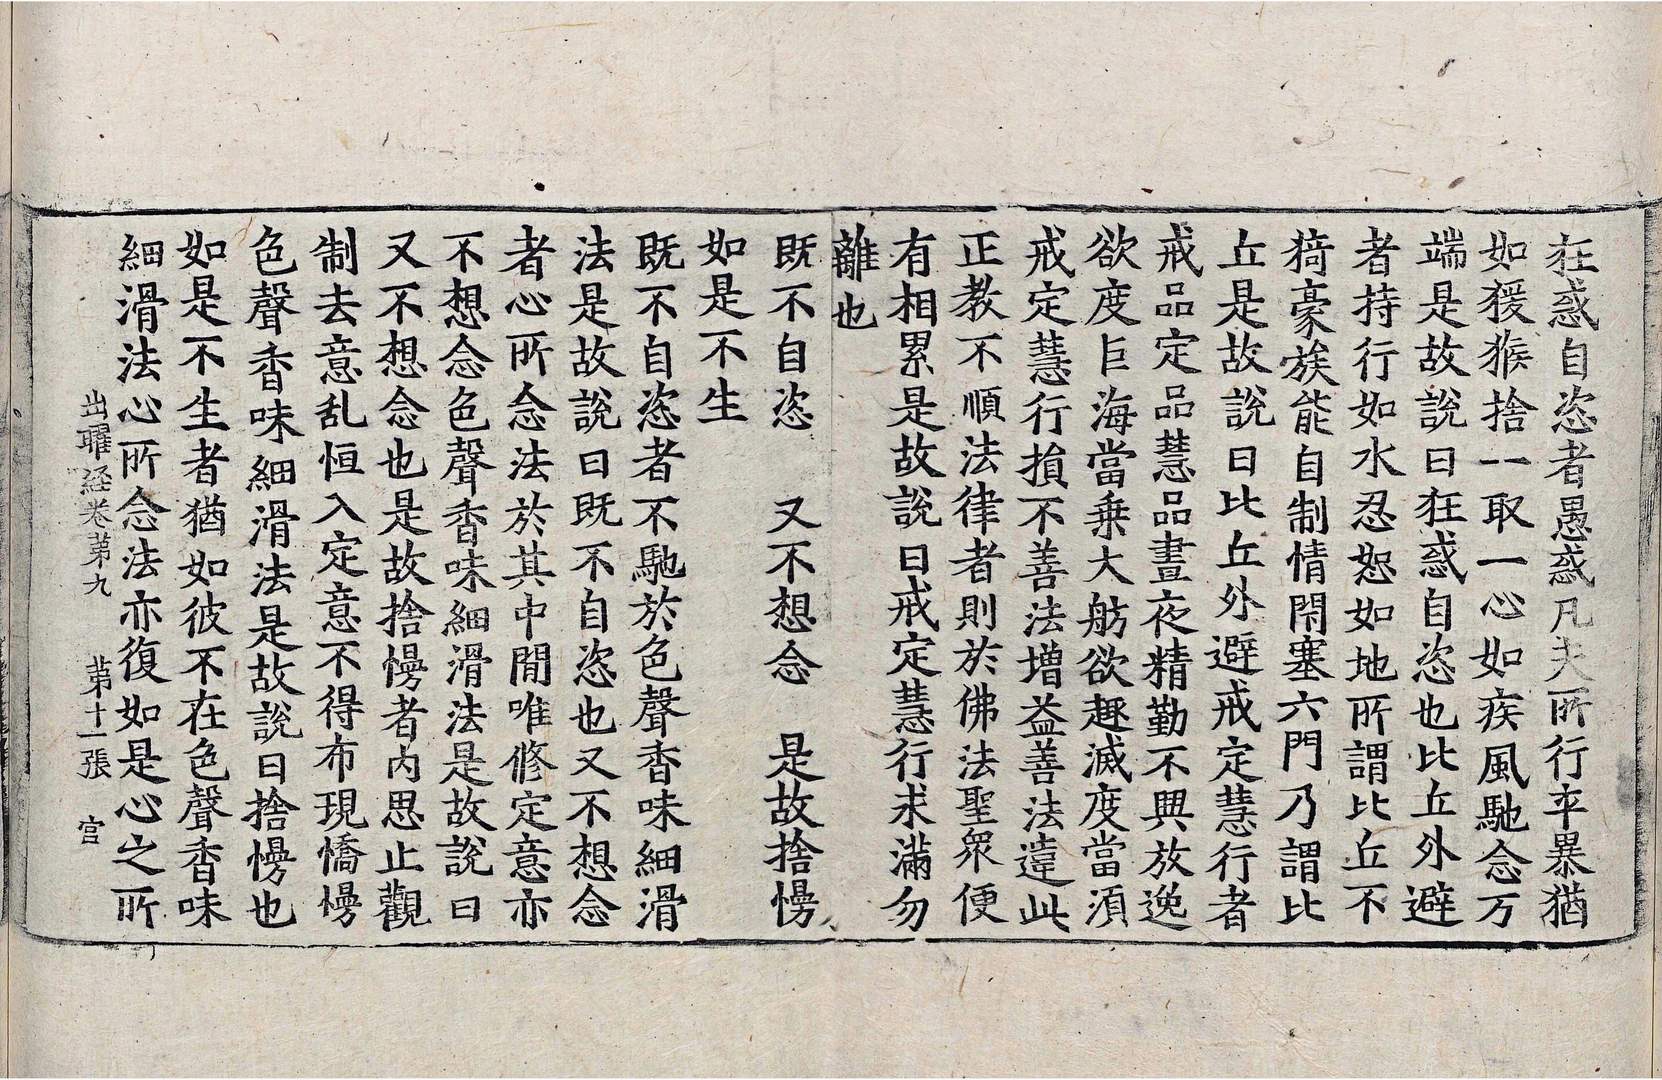 狂惑自恣者愚惑凡夫所行卒暴猶
如猨猴捨一取一心如疾風馳念万
端是故說曰狂惑自恣也比丘外避
者持行如水忍恕如地所謂比丘不
猗豪族能自制情閇塞六門乃謂比
丘是故說曰比丘外避戒定慧行者
戒品定品慧品晝夜精勤不興放逸
欲度巨海當乗大舫欲趣滅度當湏
戒定慧行損不善法増益善法違此
正教不順法律者則於佛法聖眾便
有相累是故說曰戒定慧行求滿勿
離也
既不自恣　又不想念　是故捨慢
如是不生
既不自恣者不馳於色聲香味細滑
法是故說曰既不自恣也又不想念
者心所念法於其中間唯修定意亦
不想念色聲香味細滑法是故說曰
又不想念也是故捨慢者內思止觀
制去意乱恒入定意不得布現憍慢
色聲香味細滑法是故說曰捨慢也
如是不生者猶如彼不在色聲香味
細滑法心所念法亦復如是心之所
出曜経卷第九　第十一張　宫